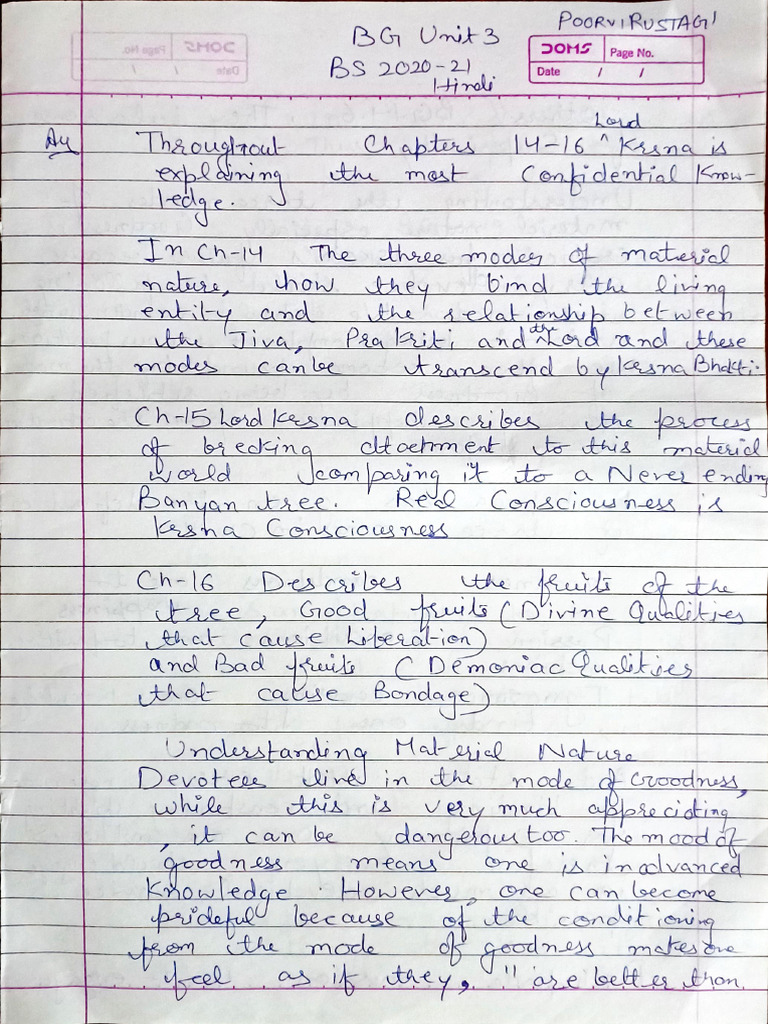 POORVI RUSTAGI
BG Unit 3
BS 2020-21
Hindi
DOMS Page No.
Date / /
Throughout Chapters 14-16 ^ Lord Krsna is
explaining the most Confidential Know-
ledge.
In Ch-14 The three modes of material
nature, how they bind the living
entity and the relationship between
the Jiva, Prakriti and the Lord and these
modes canbe transcend by Krsna Bhakti.
Ch-15 Lord Krsna describes the process
of breaking attachment to this material
world comparing it to a Never ending
Banyan tree. Real Consciousness is
Krsna Consciousness
Ch-16 Describes the fruits of the
tree, Good fruits (Divine Qualities
that cause Liberation)
and Bad fruits (Demoniac Qualities
that cause Bondage)
Understanding Material Nature
Devotees live in the mode of Goodness,
while this is very much appreciating
, it can be dangerous too. The mood of
goodness means one is inadvanced
Knowledge. However, one can become
prideful because of the conditioning
from the mode of goodness makes one
feel as if they, "are better than